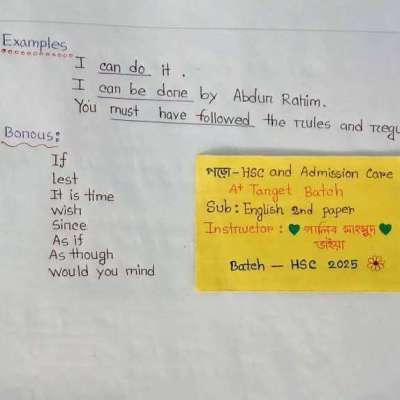 Examples
I can do it.
I can be done by Abdur Rahim.
You must have followed the rules and regu
Bonous:
If
lest
It is time
wish
Since
As if
As though
would you mind
পড়ো-HSC and Admission Care
A+ Target Batch
Sub: English 2nd paper
Instructor: গালিব মাহমুদ
ভাইয়া
Batch — HSC 2025